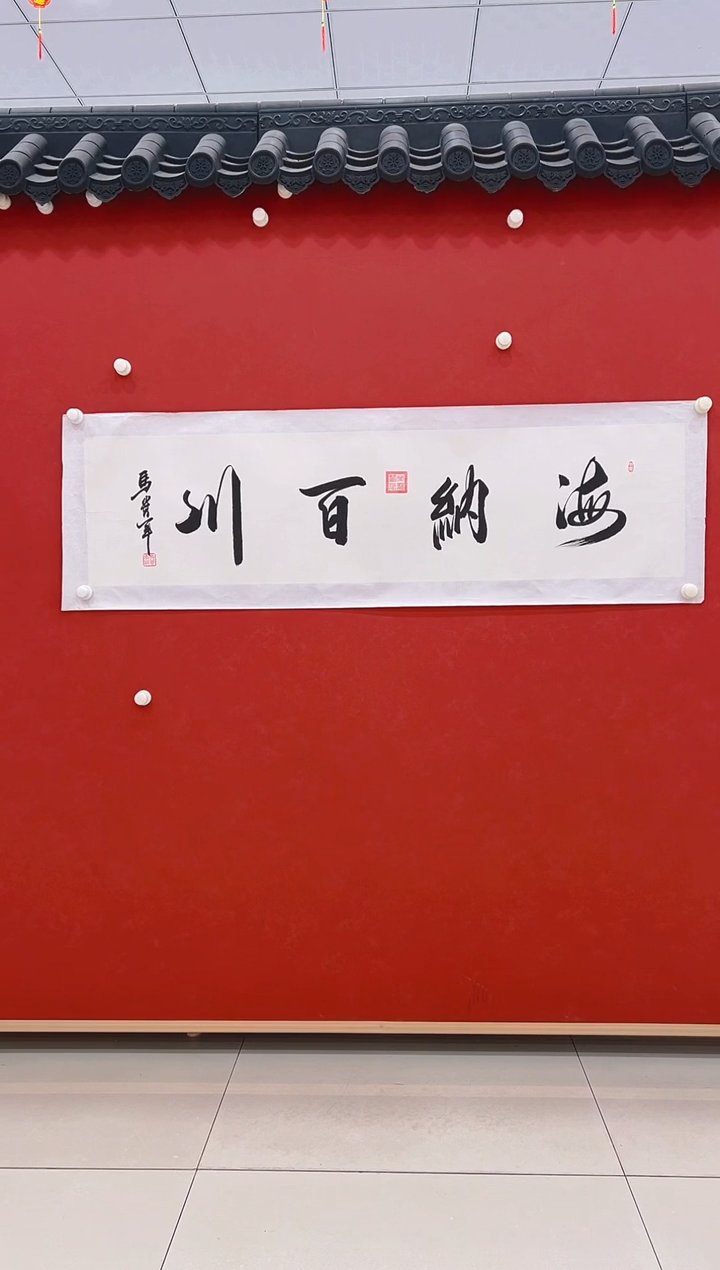 海納百川
馬貴军